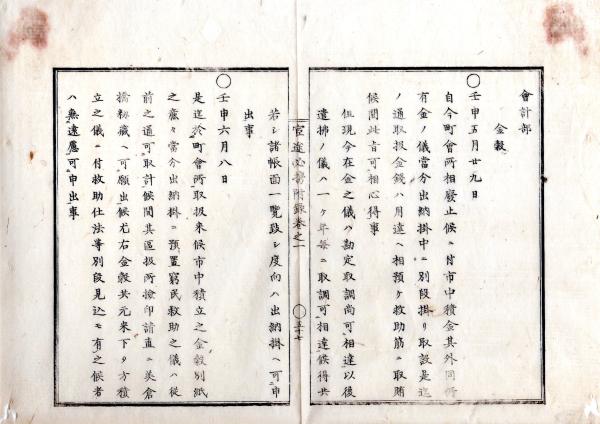 會計部
金穀
○壬申五月廿九日
自今町會所相廢止候ニ付市中積金其外同所
有金ノ儀當分出納掛中ニ別段掛リ取設是迄
ノ通取扱金錢ハ月違ヘ相預ケ救助筋ニ取賄
候間此旨可相心得事
但現今在金之儀ハ勘定取調尚可相達以後
遣拂ノ儀ハ一ケ年每ニ取調可相達候得共
官途必携附録卷之一
○五十七
若シ諸帳面一覽致シ度向ハ出納掛ヘ可申
出事
○壬申六月八日
是迄於町會所取扱來候市中積立之金穀別紙
之廉々當分出納掛ニ預置窮民救助之儀ハ從
前之通可取計候間其區扱所撿印請直ニ美倉
橋籾藏ヘ可願出候尤右金穀共元來下タ方積
立之儀ニ付救助仕法等別段見込モ有之候者
ハ無遠慮可申出事